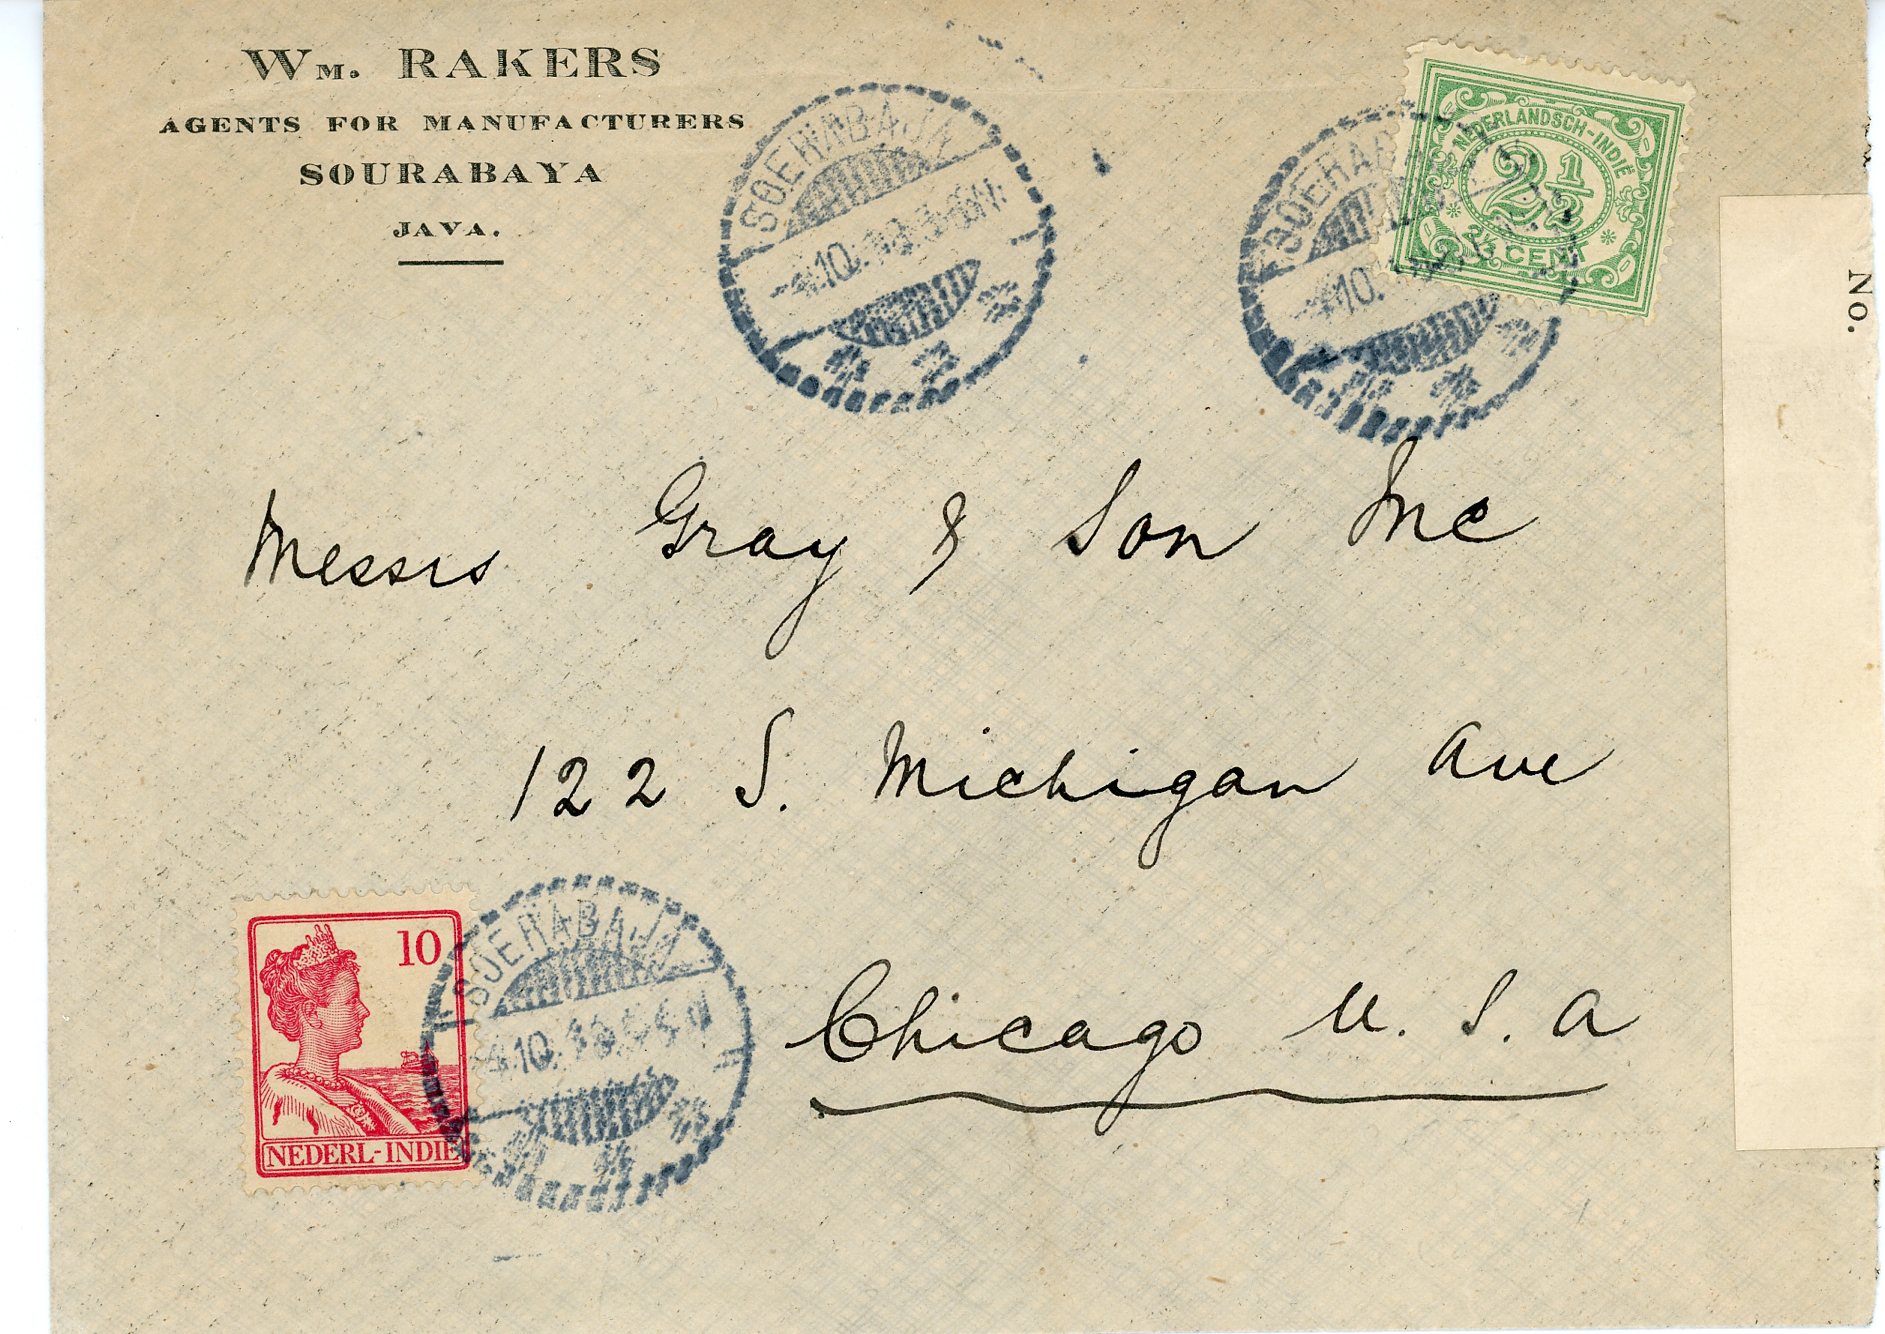 Wm. RAKERS
AGENTS FOR MANUFACTURERS
SOURABAYA
JAVA.
SOERABAJA
SOERABA
NEDERLANDSCH-INDIË
2½
2½ CENT
No.
Messrs Gray & Son Inc
122 S. Michigan Ave
Chicago U. S. A
10
NEDERL-INDIE
SOERABAJA